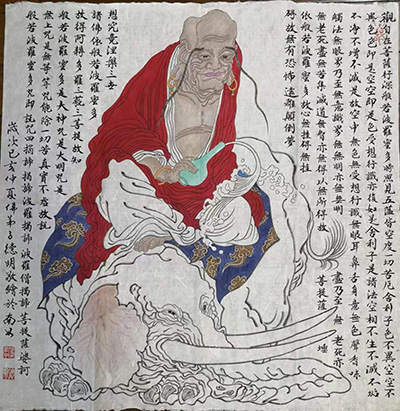 觀自在菩薩行深般若波羅蜜多時照見五蘊皆空度一切苦厄舍利子色不異空空不
異色色即是空空即是色受想行識亦復如是舍利子是諸法空相不生不滅不垢
不淨不增不減是故空中無色無受想行識無眼耳鼻舌身意無色聲香味
觸法無眼界乃至無意識界無無明亦無無明盡乃至無老死亦
無老死盡無苦集滅道無智亦無得以無所得故菩提薩埵
依般若波羅蜜多故心無挂礙無挂
礙故無有恐怖遠離顛倒夢
想究竟涅槃三世
諸佛依般若波羅蜜多
故得阿耨多羅三藐三菩提故知
般若波羅蜜多是大神咒是大明咒是
無上咒是無等等咒能除一切苦真實不虛故說
般若波羅蜜多咒即說咒曰揭諦揭諦波羅揭諦波羅僧揭諦菩提薩婆訶
歲次己亥夏佛弟子德明敬繪於南